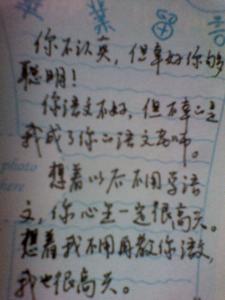 你不认真，但幸好你够
聪明！
你语文不好，但不幸的是
我成了你的语文老师。
想着以后不用学语
文，你心里一定很高兴。
想着我不用再教你语文，
我也很高兴。
photo
here